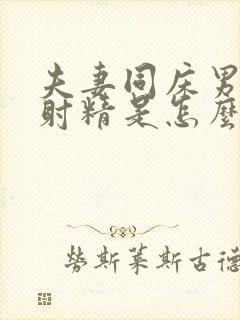 夫妻同床男
射精是怎麼
勞斯萊斯古德